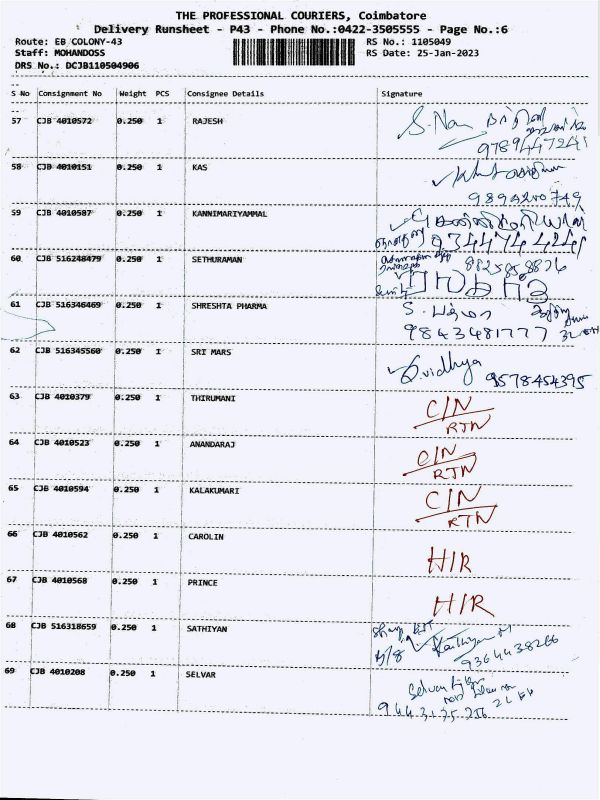 THE PROFESSIONAL COURIERS, Coimbatore
Delivery Runsheet - P43 - Phone No.:0422-3505555 - Page No.:6
Route: EB COLONY-43 RS No.: 1105049
Staff: MOHANDOSS RS Date: 25-Jan-2023
DRS No.: DCJB110504906
S No Consignment No Weight PCS Consignee Details Signature
57 CJB 4010572 0.250 1 RAJESH
9789447241
58 CJB 4010151 0.250 1 KAS
9894200749
59 CJB 4010587 0.250 1 KANNIMARIYAMMAL
60 CJB 516248479 0.250 1 SETHURAMAN 8825858876
61 CJB 516346469 0.250 1 SHRESHTA PHARMA S. பத்மா
9843481777
62 CJB 516345560 0.250 1 SRI MARS S.vidhya 9578454395
63 CJB 4010379 0.250 1 THIRUMANI C/N
RTN
64 CJB 4010523 0.250 1 ANANDARAJ C/N
RTN
65 CJB 4010594 0.250 1 KALAKUMARI C/N
RTN
66 CJB 4010562 0.250 1 CAROLIN H/R
67 CJB 4010568 0.250 1 PRINCE H/R
68 CJB 516318659 0.250 1 SATHIYAN
9364438266
69 CJB 4010208 0.250 1 SELVAR